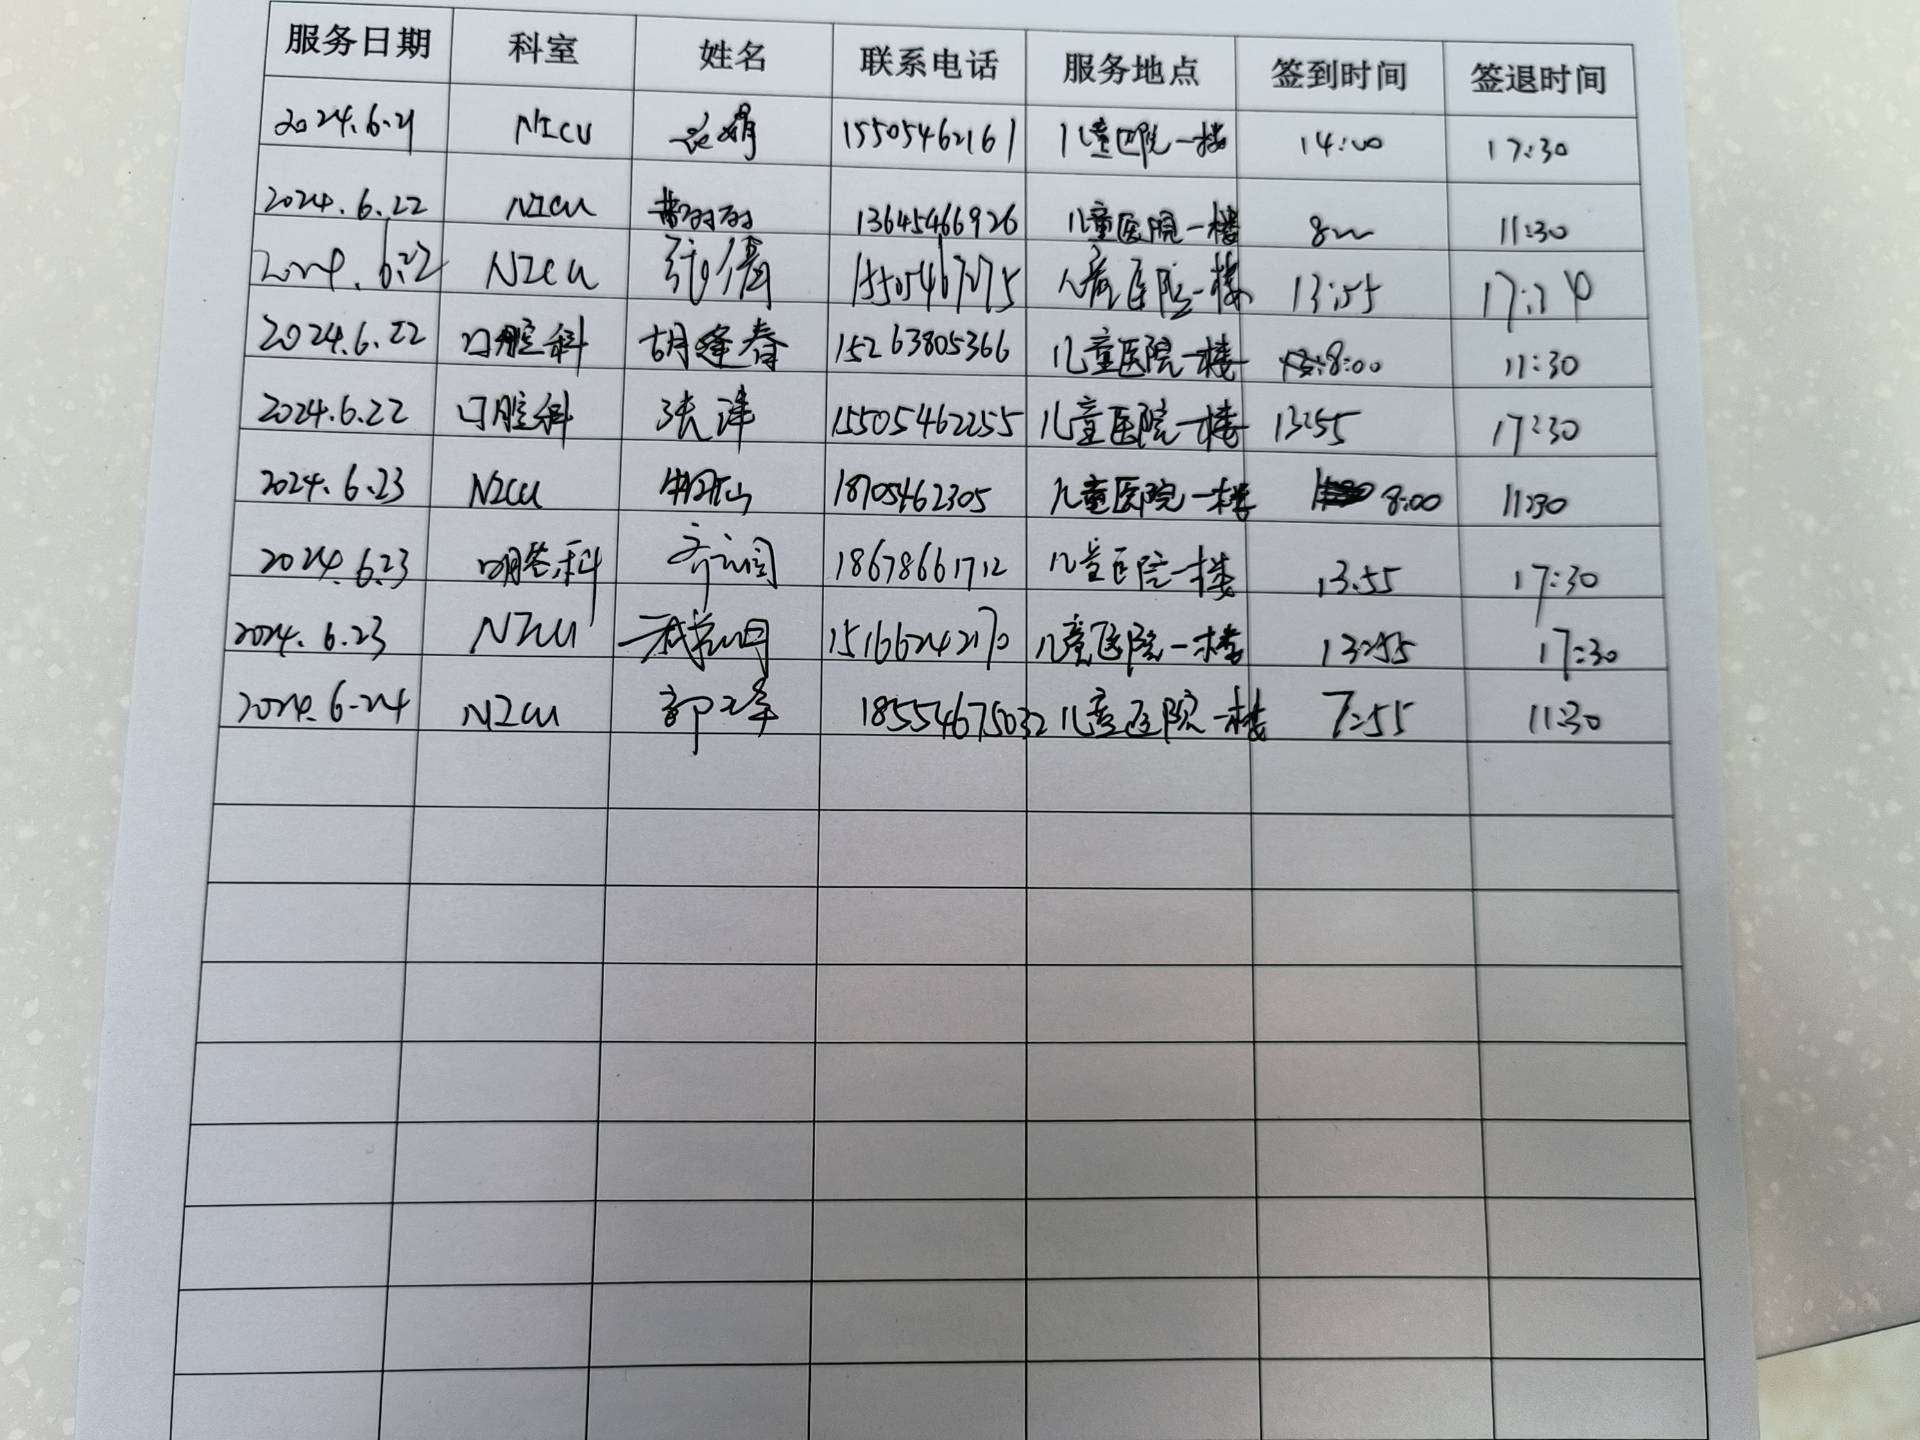 服务日期 科室 姓名 联系电话 服务地点 签到时间 签退时间
2024.6.21 NICU 娟 15505462161 儿童医院一楼 14:00 17:30
2024.6.22 NICU 13645466926 儿童医院一楼 8 11:30
2024.6.22 NICU 张倩 15505467275 儿童医院一楼 13:55 17:30
2024.6.22 口腔科 胡逢春 15263805366 儿童医院一楼 8:00 11:30
2024.6.22 口腔科 张洋 15505462255 儿童医院一楼 13:55 17:30
2024.6.23 NICU 18705462305 儿童医院一楼 8:00 11:30
2024.6.23 口腔科 齐闫 18678661712 儿童医院一楼 13:55 17:30
2024.6.23 NICU 15166242170 儿童医院一楼 13:55 17:30
2024.6.24 NICU 18554675032 儿童医院一楼 7:55 11:30